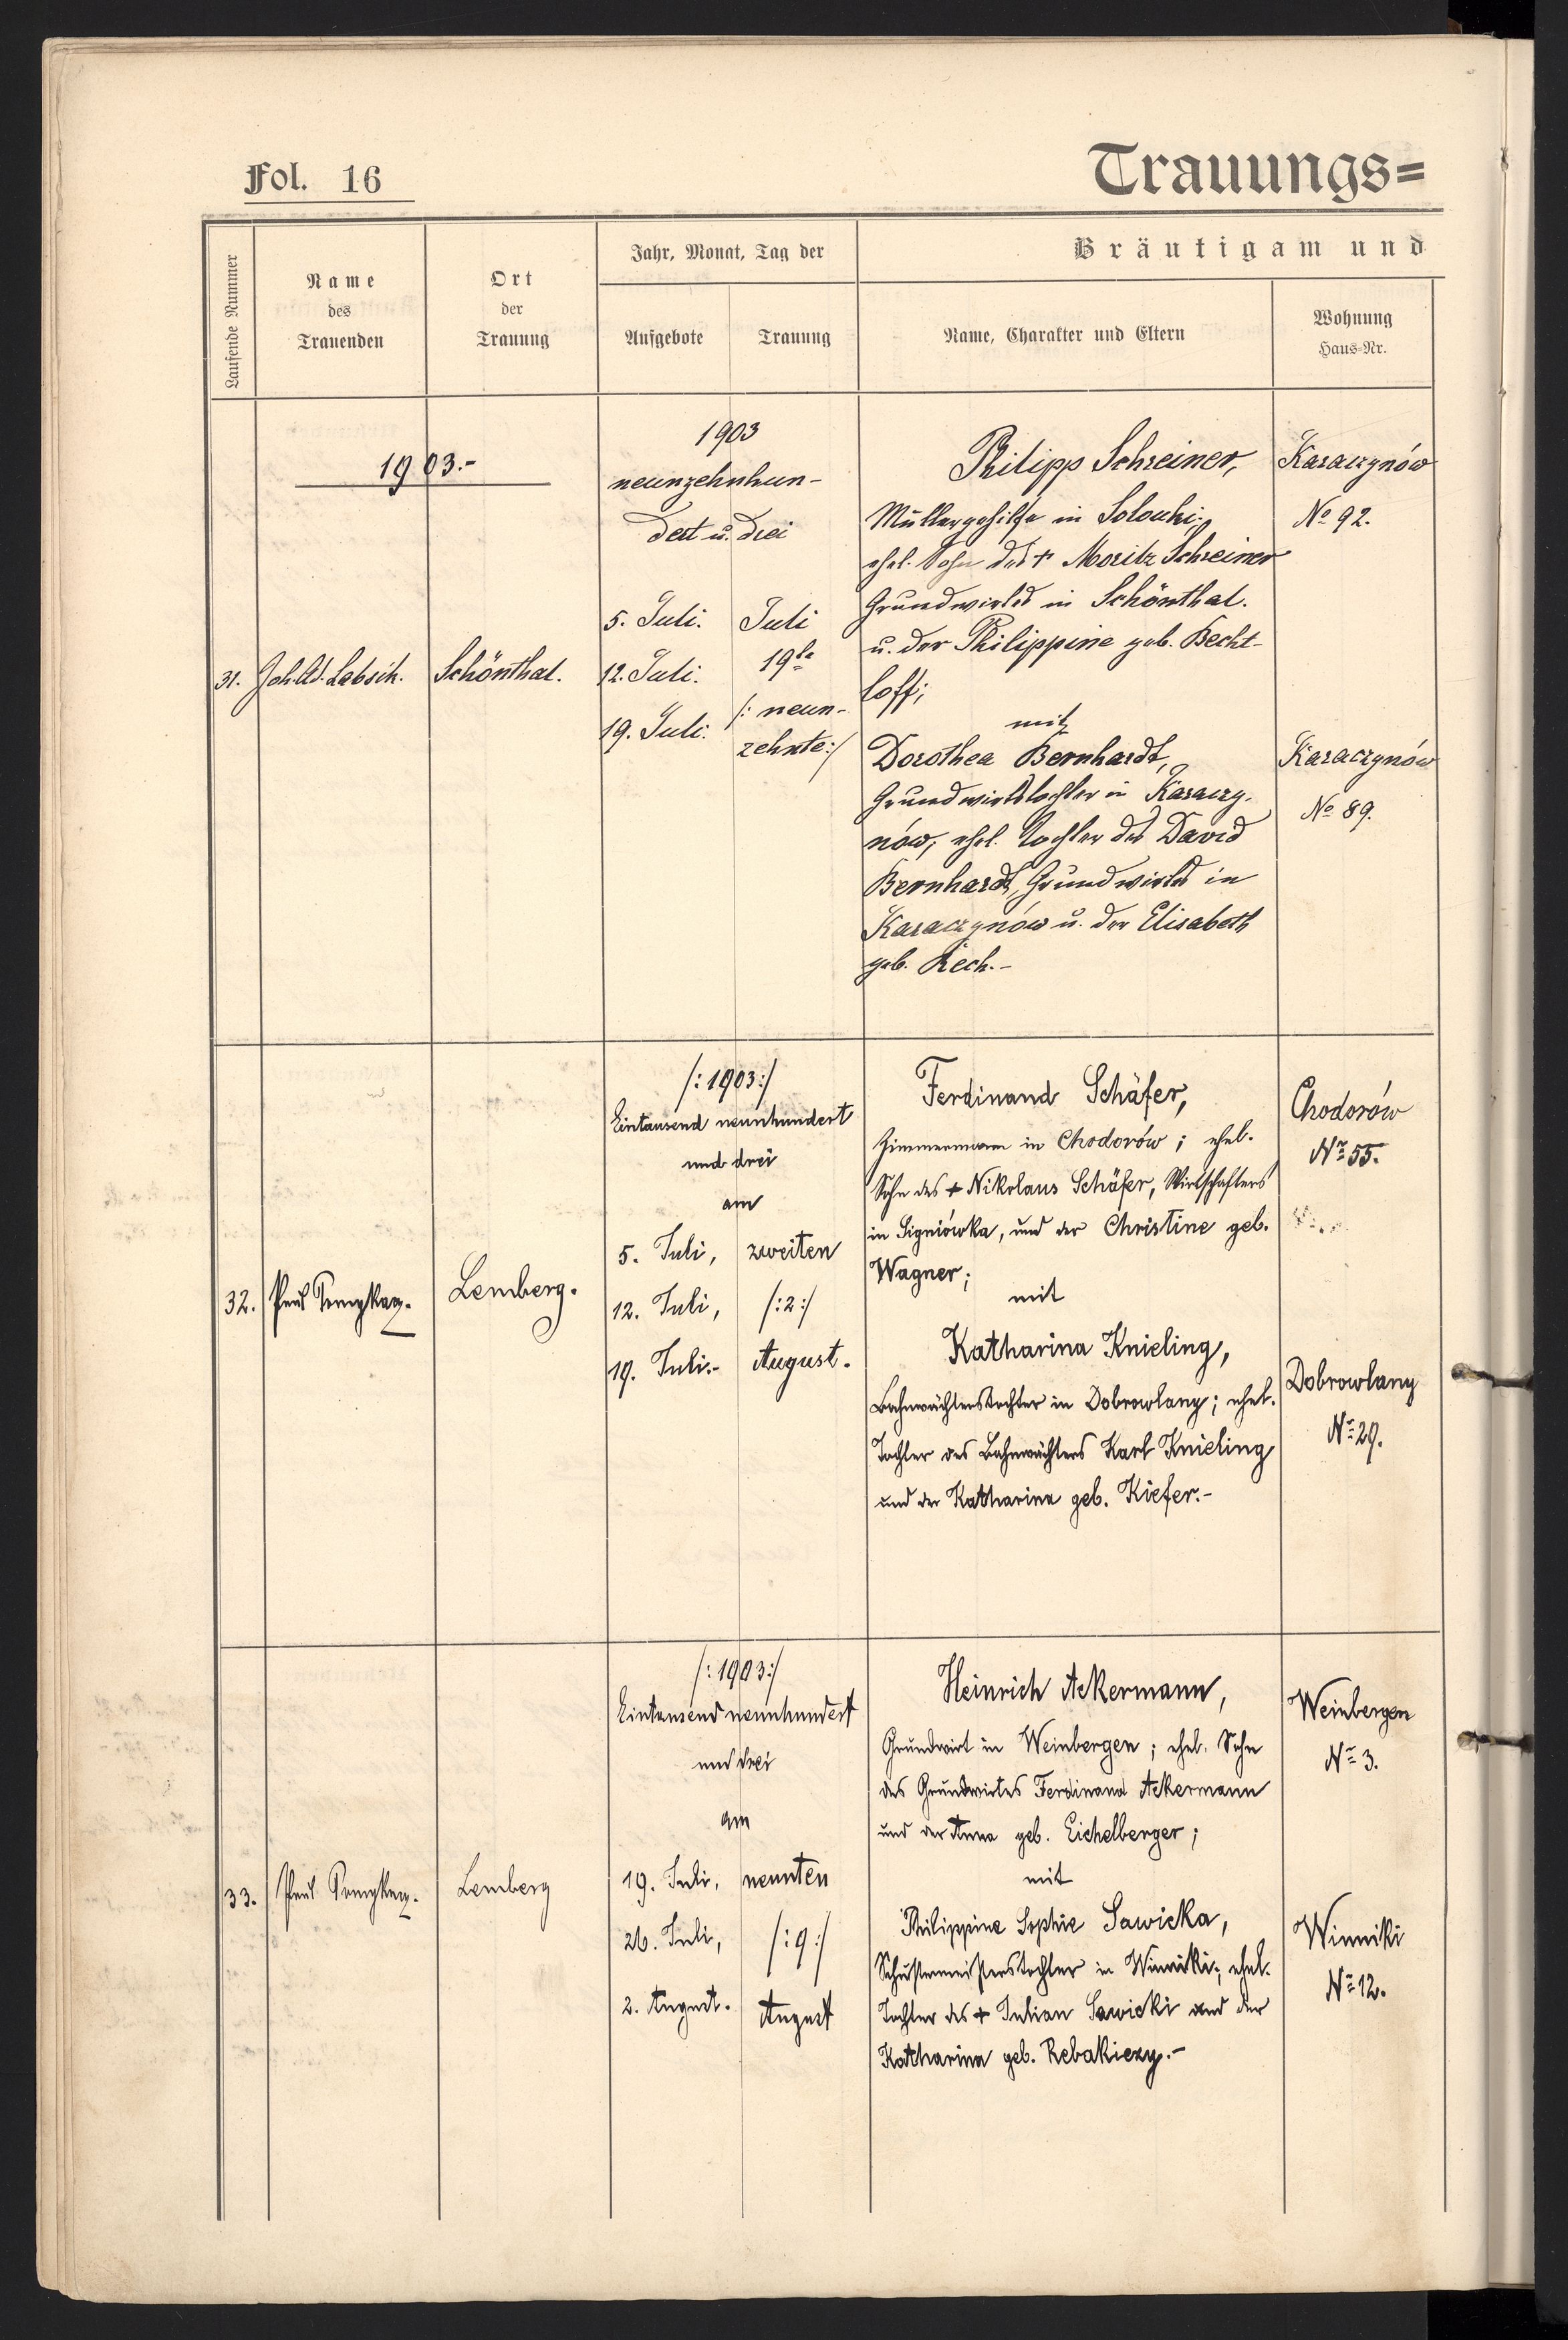 Fol. 16
Trauungs=
Laufende Nummer
Name
des
Trauenden
Ort
der
Trauung
Jahr, Monat, Tag der
Aufgebote
Trauung
Bräutigam und
Name, Charakter und Eltern
Wohnung
Haus=Nr.
1903.-
31.
Joh. Ad. Labsik.
Schönthal.
1903
neunzehnhun-
dert u. drei
5. Juli.
12. Juli.
19. Juli.
Juli
19te
/: neun-
zehnte:/
Philipp Schreiner,
Müllergehilfe in Solouki;
ehel. Sohn des + Moritz Schreiner
Grundwirtes in Schönthal.
u. der Philippine geb. Becht-
loff;
mit
Dorothea Bernhardt,
Grundwirtstochter in Karaczy-
nów, ehel. Tochter des David
Bernhardt, Grundwirtes in
Karaczynów u. der Elisabeth
geb. Rech.-
Karaczynów
No 92.
Karaczynów
No 89.
32.
Paul
Lemberg.
/:1903:/
Eintausend neunhundert
und drei
am
5. Juli,
12. Juli,
19. Juli.-
zweiten
/:2:/
August.
Ferdinand Schäfer,
Zimmermann in Chodorów; ehel.
Sohn des + Nikolaus Schäfer, Wirtschafters
in Signiówka, und der Christine geb.
Wagner;
mit
Katharina Knieling,
Bahnwächterstochter in Dobrowlany; ehel.
Tochter des Bahnwächters Karl Knieling
und der Katharina geb. Kiefer.-
Chodorów
Nr 55.
Dobrowlany
Nr 29.
33.
Paul
Lemberg
/:1903:/
Eintausend neunhundert
und drei
am
19. Juli,
26. Juli,
2. August.
neunten
/:9:/
August
Heinrich Ackermann,
Grundwirt in Weinbergen; ehel. Sohn
des Grundwirtes Ferdinand Ackermann
und der Anna geb. Eichelberger;
mit
Philippine Sophie Sawicka,
Schustermeisterstochter in Winniki; ehel.
Tochter des + Julian Sawicki und der
Katharina geb. Rebakiezy.-
Weinbergen
Nr 3.
Winniki
Nr 12.